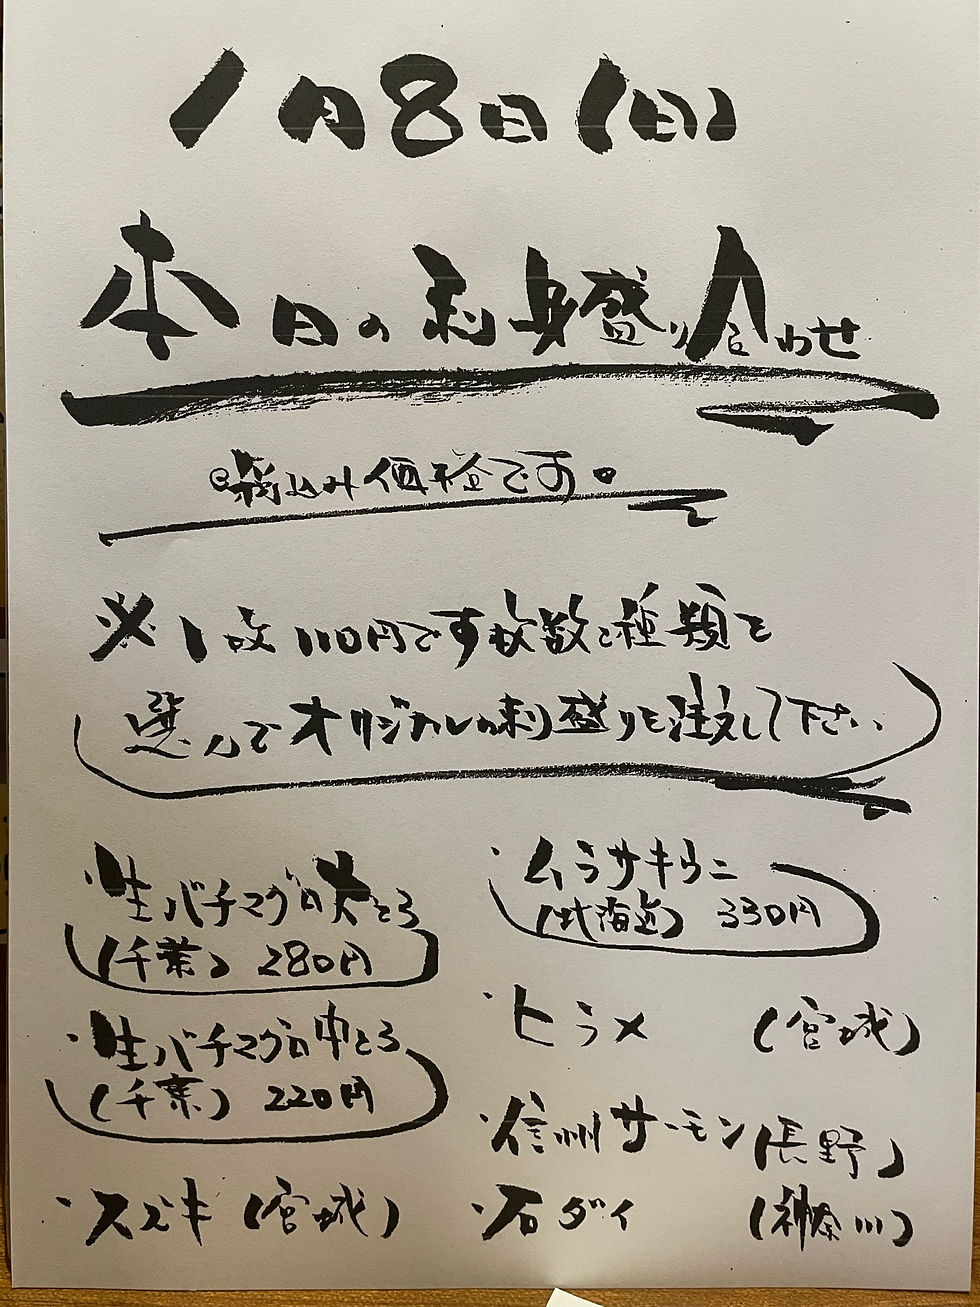 1月8日(日)
本日の刺身盛り合わせ
◎税込み価格です。
※1枚110円です枚数と種類を
選んでオリジナルの刺し盛りを注文して下さい。
・生バチマグロ大とろ
(千葉) 280円
・生バチマグロ中とろ
(千葉) 220円
・スズキ(宮城)
・ムラサキウニ
(北海道) 330円
・ヒラメ (宮城)
・信州サーモン(長野)
・石ダイ (神奈川)